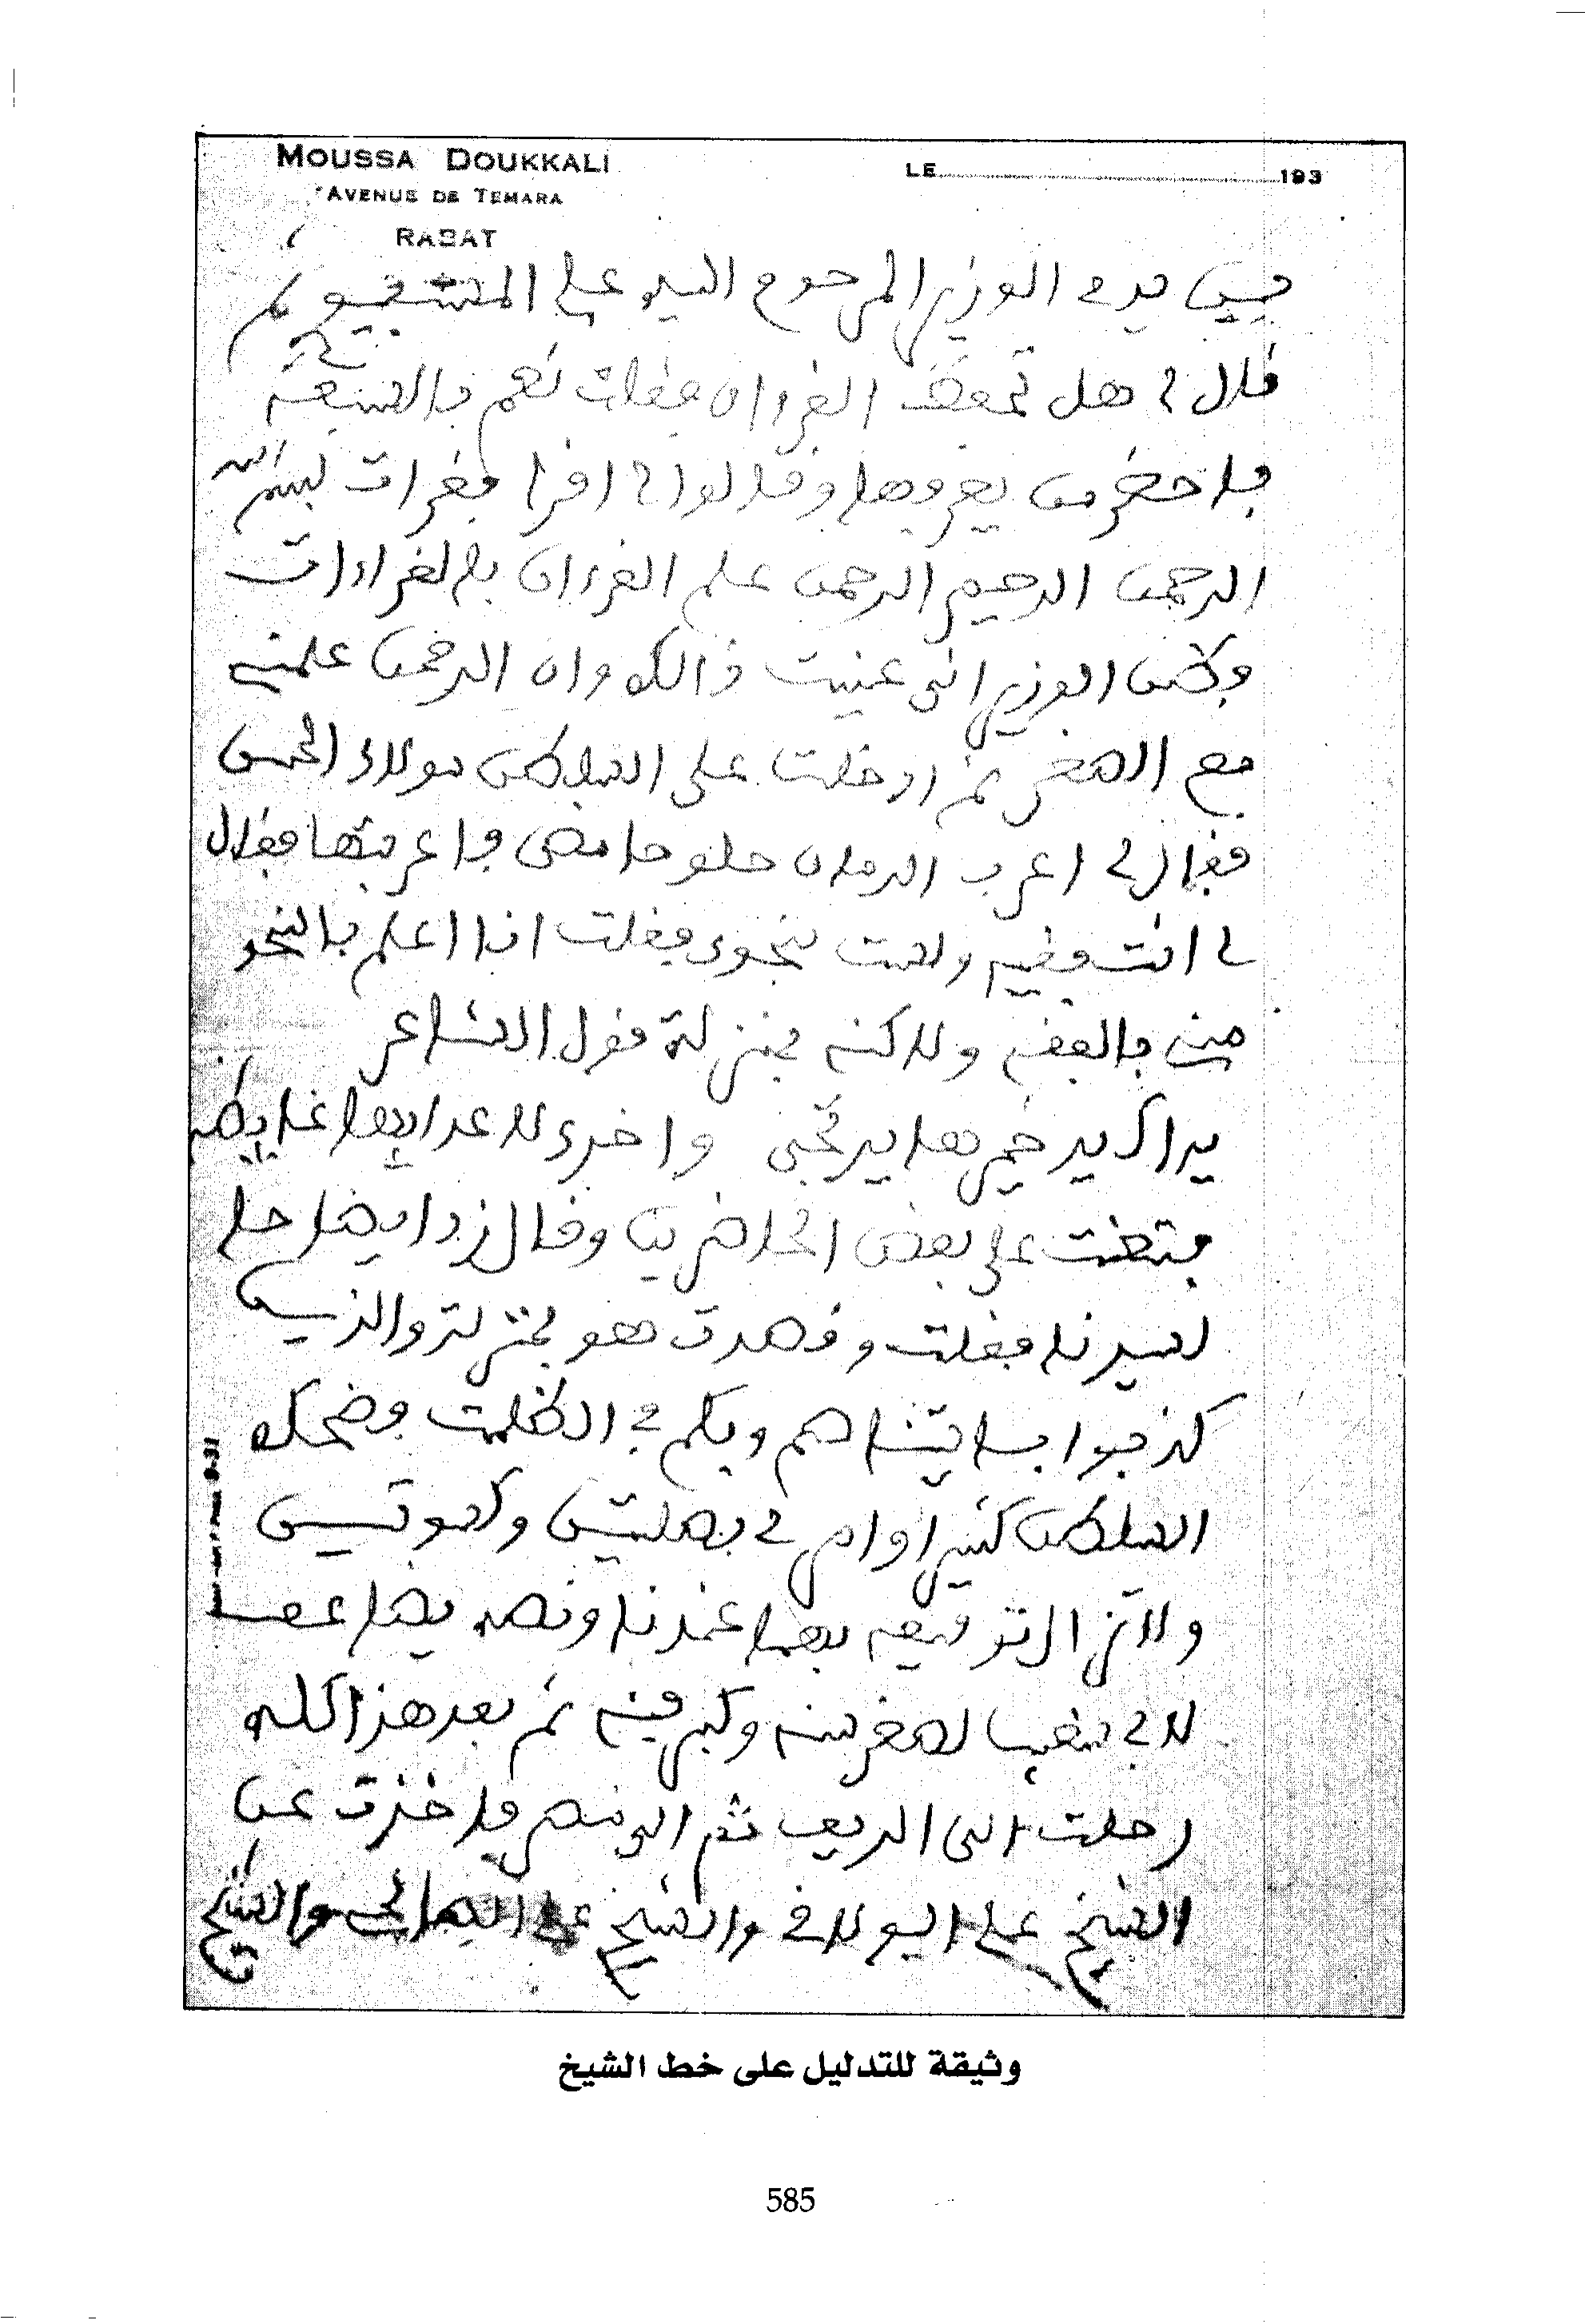 MOUSSA DOUKKALI
AVENUE DE TEMARA
RABAT
LE 193
بين يدي الوزير المرحوم السيد علي المسفيوي
قال لي هل تحفظ القرءان فقلت نعم بالسبعة
فاحضر من يعرفها وقالوا لي اقرا فقرات بسم الله
الرحمن الرحيم الرحمن علم القرءان بالقراءات
وظن الوزير اني عنيت ذالك وان الرحمن علمنيه
مع الصغر ثم ادخلت على السلطان مولاي الحسن
فقال لي اعرب الرمان حلو حامض فاعربتها فقال
لي انت فقيه ولست نحوي فقلت انا اعلم بالنحو
مني بالفقه ولاكنه بمنزلة قول الشاعر
يداك يد خيرها يرتجى واخرى لاعدائها غايظه
فتعنت علي بعض الحاضرين وقال زد ايضاحا
لسيدنا فقلت وقصدت هو بمنزلة والذين
كذبوا بئاياتنا صم وبكم في الظلمت فضحك
السلطان كثيرا وامر لي بصلتين وكسوتين
ولاتزال توقيعه بهما عندنا ونصه يضاعف
لابي شعيب لصغر سنه وكبر فنه ثم بعد هذا كله
رحلت الى الريف ثم الى مصر فاخذت عن
الشيخ علي البولاقي والشيخ والشيخ
وثيقة للتدليل على خط الشيخ
585